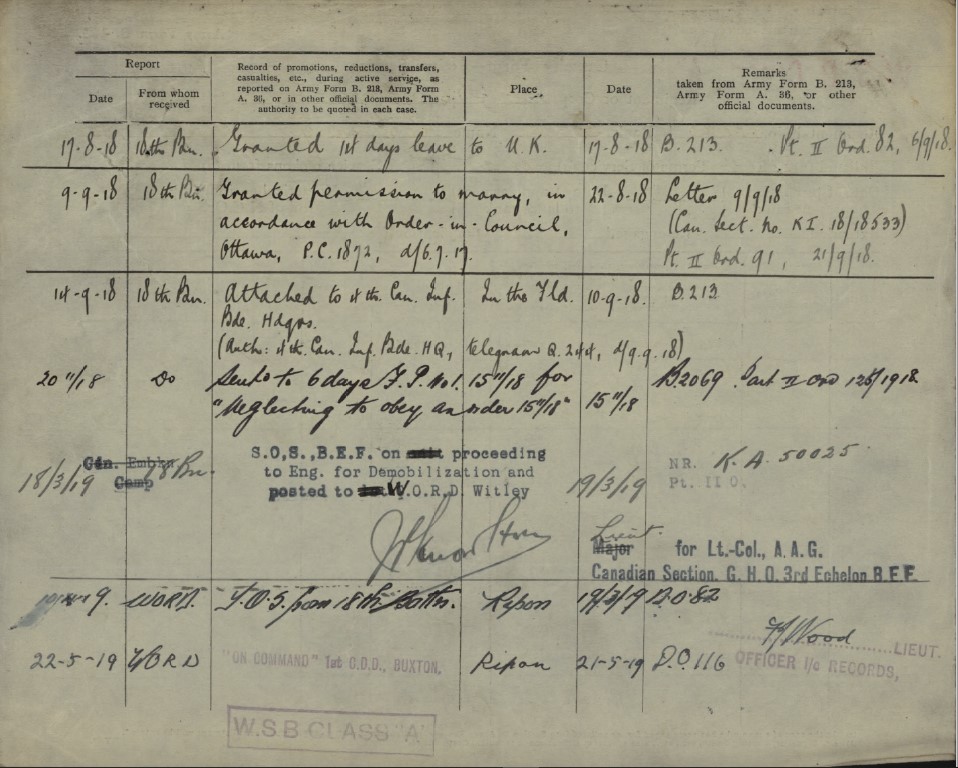 Report
Date
From whom received
Record of promotions, reductions, transfers, casualties, etc., during active service, as reported on Army Form B. 213, Army Form A. 36, or in other official documents. The authority to be quoted in each case.
Place
Date
Remarks
taken from Army Form B. 213, Army Form A. 36, or other official documents.
17-8-18 18th Bn. Granted 14 days leave to U.K. 17-8-18 B.213. Pt. II Ord. 82, 6/9/18.
9-9-18 18th Bn. Granted permission to marry, in 22-8-18 Letter 9/9/18
accordance with Order-in-Council, (Can. Sect. No. K I. 18/18533)
Ottawa, P.C. 1872, d/6.7.17. Pt. II Ord. 91, 21/9/18.
14-9-18 18th Bn. Attached to 4th. Can. Inf. In the Fld. 10-9-18. B.213
Bde. Hdqrs.
(Auth: 4th. Can. Inf. Bde. HQ, telegram Q.244, d/9.9.18)
20 11/18 Do Sent'd to 6 days F.P. No 1. 15 11/18 for B2069 Part II Ord
"Neglecting to obey an order 15 11/18" 15 11/18
18/3/19 Gen. Embkn Camp 18 Bn. S.O,S.,B.E.F. on proceeding
to Eng. for Demobilization and 19/3/19 NR. K.A. 50025
posted to W.O.R.D. Witley Pt. II O.
Lieut.
Major for Lt.-Col., A.A.G.
Canadian Section, G.H.Q. 3rd Echelon B.E.F.
9. WORD. T.O.S from 18th Battn. Ripon 19/3/19 D.O.82
Wood LIEUT.
22-5-19 WORD "ON COMMAND" 1st C.D.D., BUXTON, Ripon 21-5-19 D.O. 116 OFFICER I/c RECORDS,
W.S.B CLASS "A"